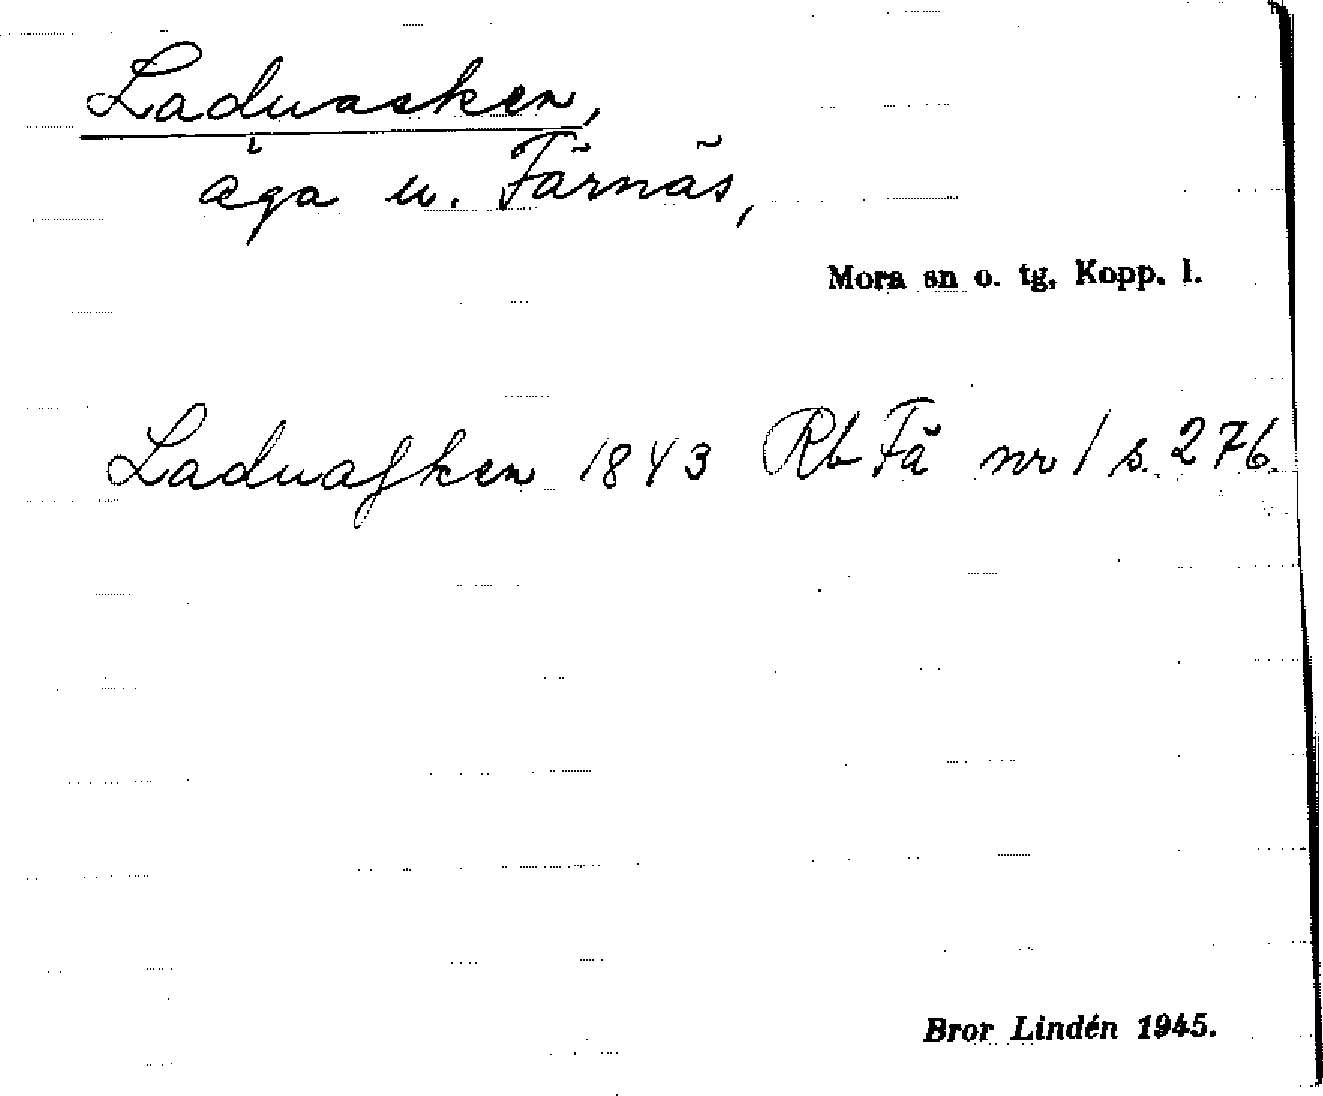 Laduasken,
äga u. Färnäs,
Mora sn o. tg, Kopp. l.
Laduaſken 1843 Rb Fä nr 1 s. 276.
Bror Lindén 1945.